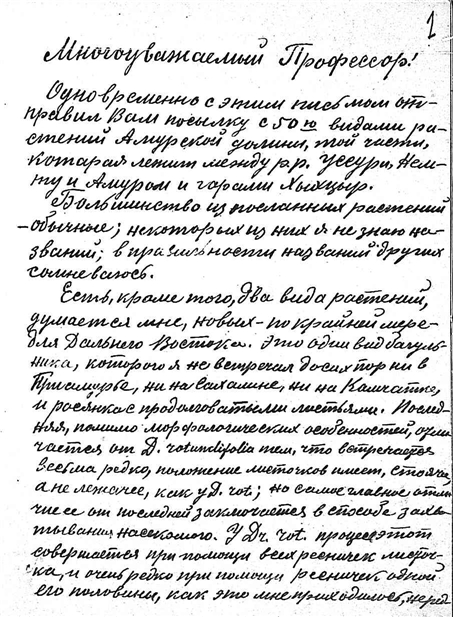 1
Многоуважаемый Профессор!
Одновременно с этим письмом от-
правил Вам посылку с 50ю видами ра-
стений Амурской долины, той части,
которая лежит между р.р. Уссури, Нем-
ту и Амуром и горами Хыхцыр.
Большинство из посланных растений
- обычные; некоторых из них я не знаю на-
званий; в правильности названий других
сомневаюсь.
Есть, кроме того, два вида растений,
думается мне, новых - по крайней мере
для Дальнего Востока. Это один вид багуль-
ника, которого я не встречал до сих пор ни в
Приамурье, ни на Сахалине, ни на Камчатке,
и росянка с продолговатыми листьями. Послед-
няя, помимо морфологических особенностей, отли-
чается от D. rotundifolia тем, что встречается
весьма редко, положение листочков имеет, стоячее,
а не лежачее, как у D. rot; но самое главное отли-
чие ее от последней заключается в способе захва-
тывания насекомого. У Dr. rot. процесс этот
совершается при помощи всех ресничек листоч-
ка, и очень редко при помощи ресничек одной
его половины, как это мне приходилось, перед